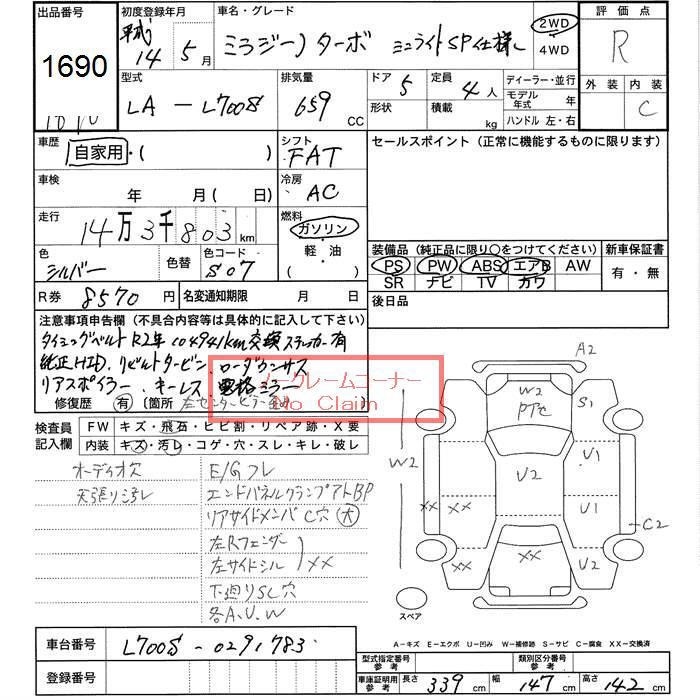 出品番号
1690
初度登録年月
平成
14 5月
車名・グレード
ミラジーノ ターボ ミニライトSP仕様
2WD
4WD
評価点
R
型式
LA-L700S
排気量
659 CC
ドア 5
形状
定員 4人
積載 kg
ディーラー・並行
モデル年式 年
ハンドル 左・右
外装 内装
C
車歴
自家用・( )
シフト
FAT
セールスポイント(正常に機能するものに限ります)
車検
年 月(日)
冷房
AC
走行
14万3千803km
燃料
ガソリン
軽・油
( )
色
シルバー
色替
色コード
S07
装備品(純正品に限り○をつけてください)
PS PW ABS エアB AW
SR ナビ TV カワ
新車保証書
有・無
R券 8570円
名変通知期限 月 日
後日品
注意事項申告欄(不具合内容等は具体的に記入して下さい)
タイミングベルト R2年 004941km交換ステッカー有
純正HID、リビルトタービン、ローダウンサス
リアスポイラー、キーレス、電格ミラー
修復歴 有 〔箇所 左センターピラー
ノークレームコーナー
No Claim
検査員記入欄
FW キズ・飛石・ヒビ割・リペア跡・X要
内装 キズ・汚レ・コゲ・穴・スレ・キレ・破レ
オーディオ欠
天張り汚レ
E/Gフレ
エンドパネルクランプアトBP
リアサイドメンバC穴 大
左Rフェンダー
左サイドシル
XX
下廻りSC穴
各A.U.W
A2
W2
S1
W2
U2
U1
XX
XX
U1
C2
XX
XX
U2
スペア
車台番号 L700S-0291783
登録番号
A-キズ E-エクボ U-凹み W-補修跡 S-サビ C-腐食 XX-交換済
型式指定番号
参考
類別区分番号
参考
車庫証明用
参考
長さ 339cm 幅 147cm 高さ 142cm